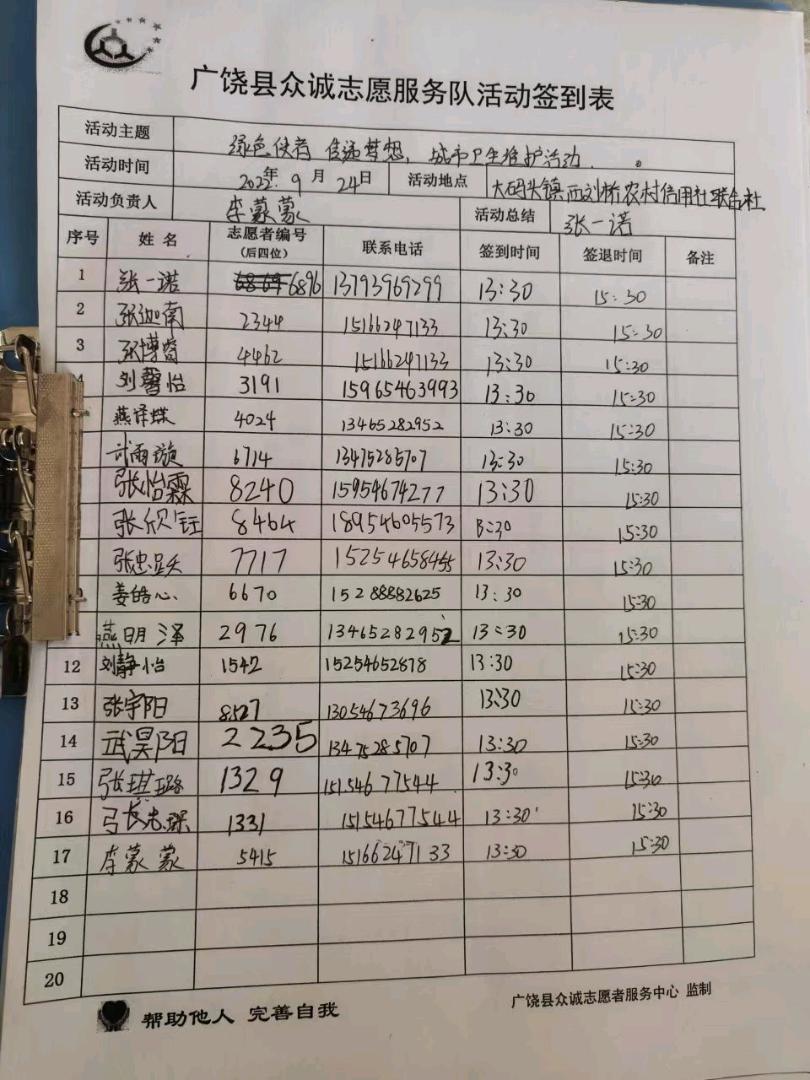 广饶县众诚志愿服务队活动签到表
活动主题 绿色使者 传递梦想，城市卫生维护活动.
活动时间 2022年9月24日 活动地点 大码头镇西刘桥农村信用社联合社
活动负责人 李蒙蒙 活动总结 张一诺
序号 姓名 志愿者编号（后四位） 联系电话 签到时间 签退时间 备注
1 张一诺 6896 13793969299 13:30 15:30
2 张迦南 2344 15166247133 13:30 15:30
3 张博睿 4462 15166247133 13:30 15:30
刘馨怡 3191 15965463993 13:30 15:30
燕译 4024 13465282952 13:30 15:30
武雨璇 6714 13475285707 13:30 15:30
张怡霖 8240 15954674277 13:30 15:30
张欣钰 8464 18954605573 13:30 15:30
张忠 7717 15254658455 13:30 15:30
姜皓心 6670 15288882625 13:30 15:30
燕明泽 2976 13465282952 13:30 15:30
12 刘静怡 1542 15254652878 13:30 15:30
13 张宇阳 8527 13054673696 13:30 15:30
14 武昊阳 2235 13475285707 13:30 15:30
15 张琪璐 1329 15154677544 13:30 15:30
16 张志琛 1331 15154677544 13:30 15:30
17 李蒙蒙 5415 15166247133 13:30 15:30
18
19
20
帮助他人 完善自我
广饶县众诚志愿者服务中心 监制